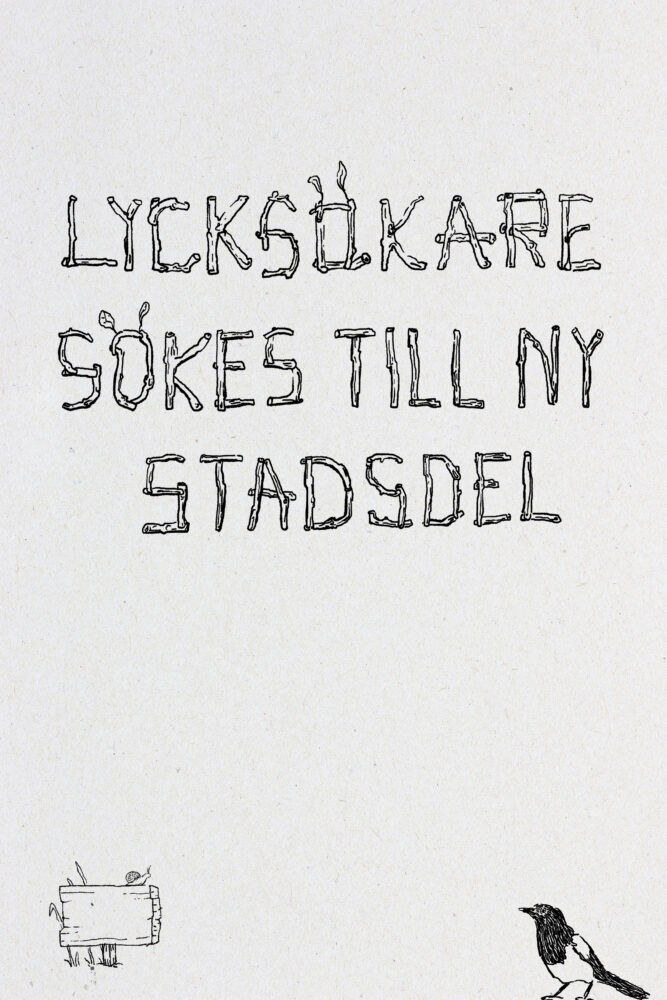 LYCKSÖKARE
SÖKES TILL NY
STADSDEL